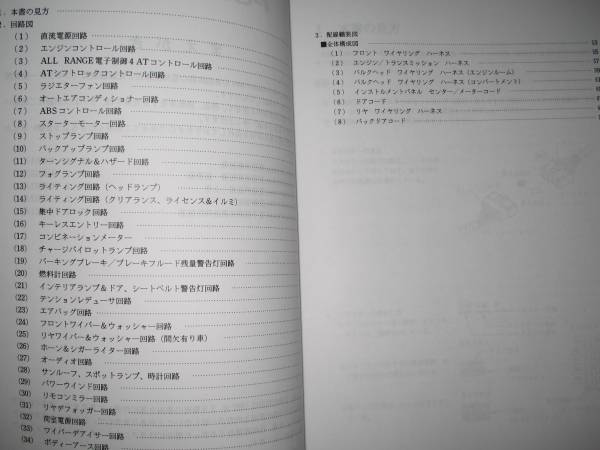 1. 本書の見方
2. 回路図
(1) 直流電源回路
(2) エンジンコントロール回路
(3) ALL RANGE電子制御4ATコントロール回路
(4) ATシフトロックコントロール回路
(5) ラジエターファン回路
(6) オートエアコンディショナー回路
(7) ABSコントロール回路
(8) スターターモーター回路
(9) ストップランプ回路
(10) バックアップランプ回路
(11) ターンシグナル&ハザード回路
(12) フォグランプ回路
(13) ライティング回路(ヘッドランプ)
(14) ライティング回路(クリアランス、ライセンス&イルミ)
(15) 集中ドアロック回路
(16) キーレスエントリー回路
(17) コンビネーションメーター
(18) チャージパイロットランプ回路
(19) パーキングブレーキ/ブレーキフルード残量警告灯回路
(20) 燃料計回路
(21) インテリアランプ&ドア、シートベルト警告灯回路
(22) テンションレデューサ回路
(23) エアバッグ回路
(24) フロントワイパー&ウォッシャー回路
(25) リヤワイパー&ウォッシャー回路(間欠有り車)
(26) ホーン&シガーライター回路
(27) オーディオ回路
(28) サンルーフ、スポットランプ、時計回路
(29) パワーウインド回路
(30) リモコンミラー回路
(31) リヤデフォッガー回路
(32) 荷室電源回路
(33) ワイパーデアイサー回路
(34) ボディーアース回路
3. 配線艤装図
■全体構成図
(1) フロント ワイヤリング ハーネス
(2) エンジン/トランスミッション ハーネス
(3) バルクヘッド ワイヤリング ハーネス(エンジンルーム)
(4) バルクヘッド ワイヤリング ハーネス(コンパートメント)
(5) インストルメントパネル センター/メーターコード
(6) ドアコード
(7) リヤ ワイヤリング ハーネス
(8) バックドアコード